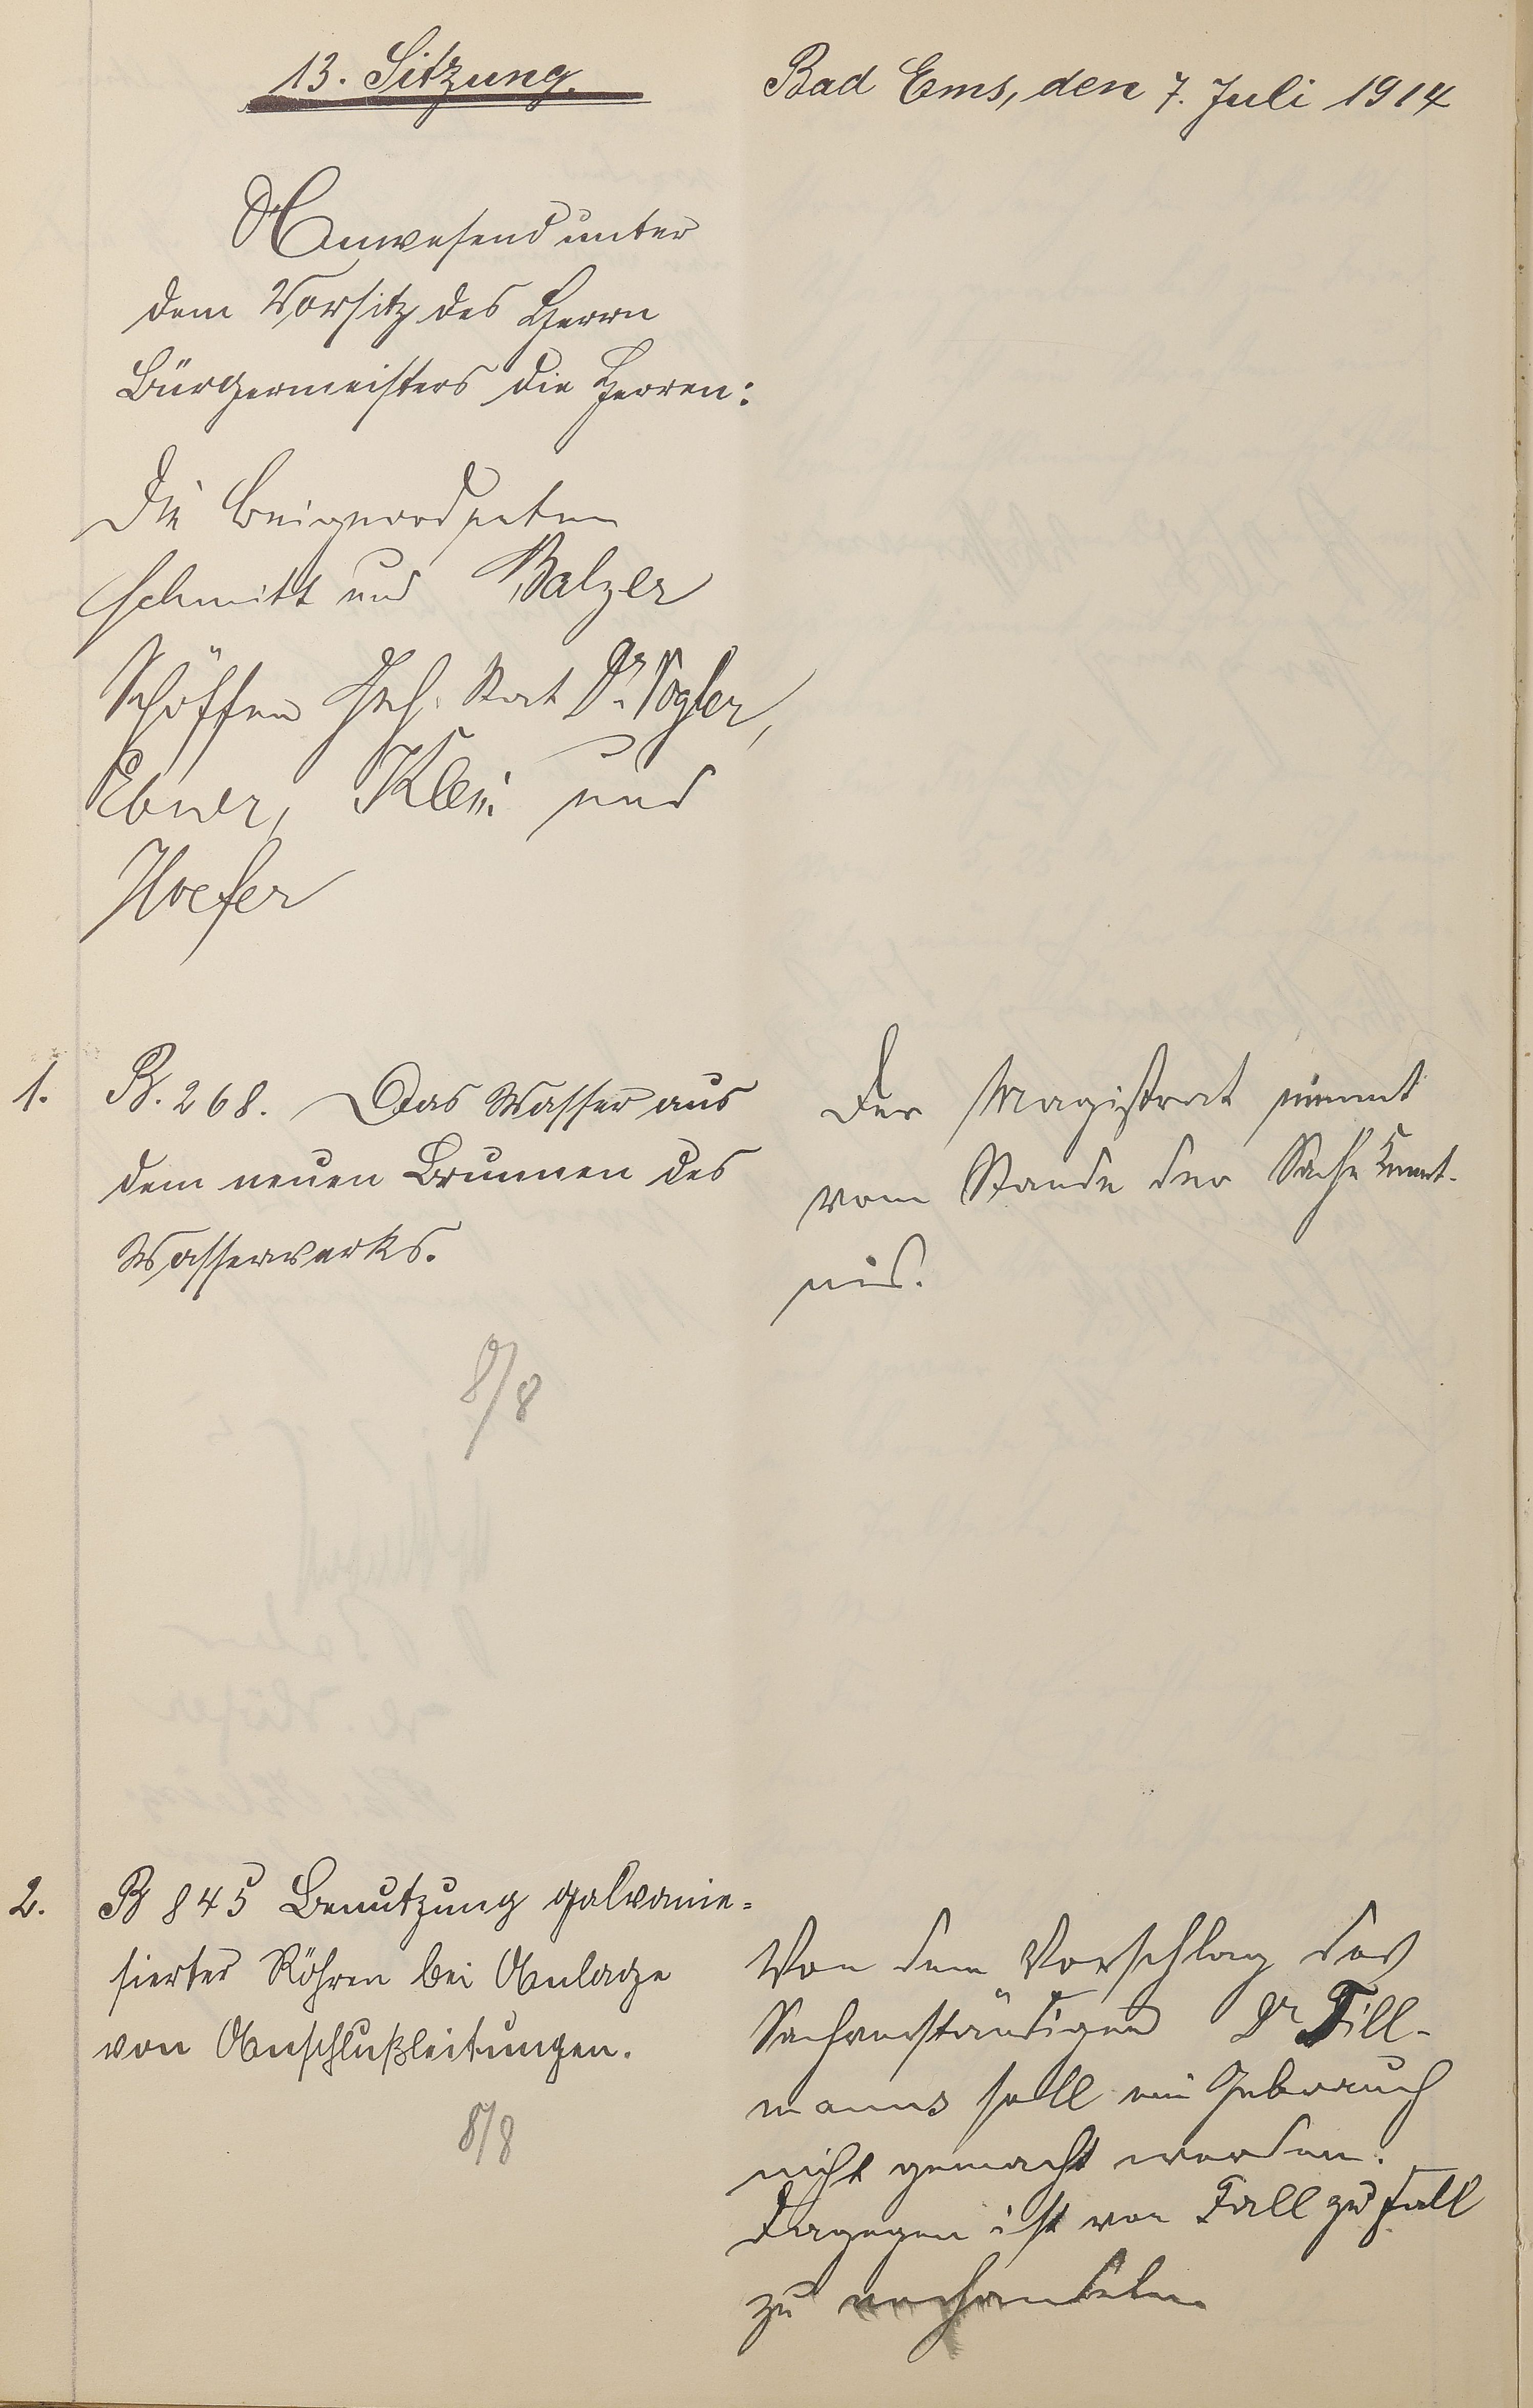 13. Sitzung.
Bad Ems, den 7. Juli 1914
Anwesend unter
dem Vorsitz des Herrn
Bürgermeisters die Herren:
Die Beigeordneten
Schmitt und Balzer
Schöffen Geh. Rat Dr. Vogler,
Ebner, Klein und
Hoefer
1. B. 268. Das Wasser aus
dem neuen Brunnen des
Wasserwerks.
8/8
Der Magistrat nimmt
vom Stande der Sache Kennt-
nis.
2. B 845 Benutzung galvanie=
sierter Röhren bei Anlage
von Anschlußleitungen.
8/8
Von dem Vorschlag des
Sachverständigen Dr Till-
manns soll ein Gebrauch
nicht gemacht werden.
Dagegen ist von Fall zu Fall
zu